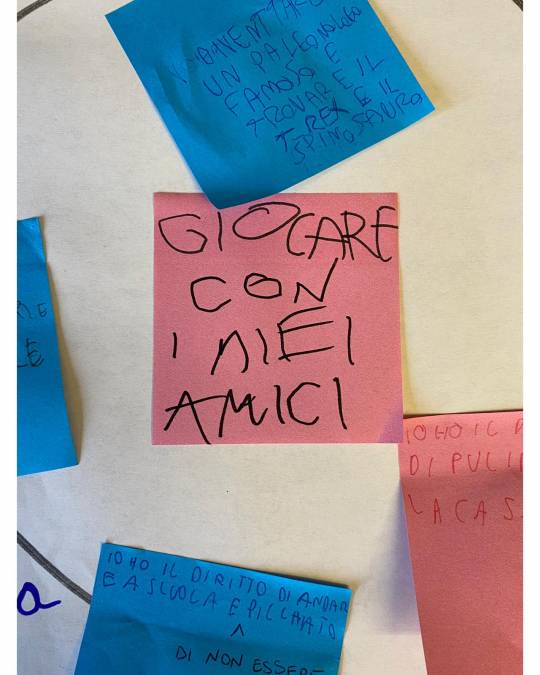 DIVENTARE
UN PALEONOLOGO
FAMOSO E
TROVARE IL
T-REX E IL
SPINOSAURO
GIOCARE
CON
I MIEI
AMICI
LE
IO HO IL D
DI PULI
LA CAS
IO HO IL DIRITTO DI ANDAR
E A SCUOLA E PICCHIATO
^
DI NON ESSERE
a